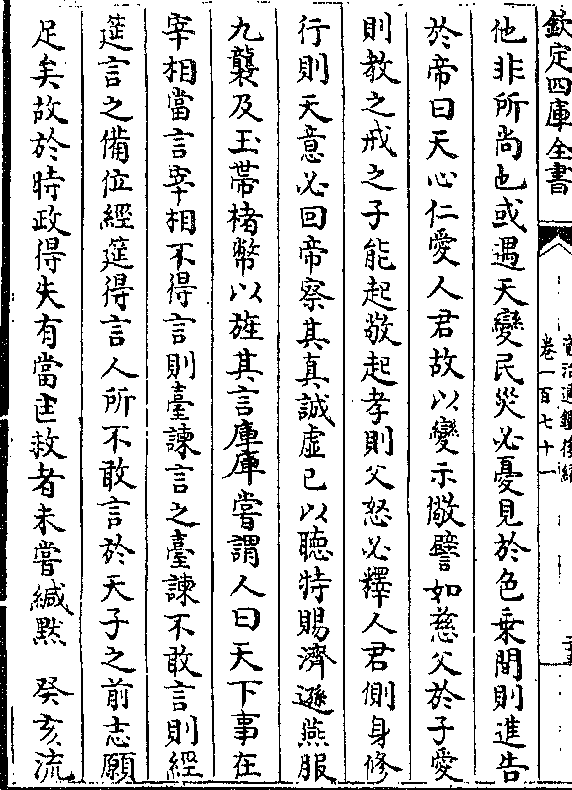 欽定四庫全書
資治通鑑後編
卷一百七十一
他非所尚也或遇天變民災必憂見於色乗間則進告
於帝曰天心仁愛人君故以變示儆譬如慈父於子愛
則教之戒之子能起敬起孝則父怒必釋人君側身修
行則天意必回帝察其真誠虚已以聽特賜濟遜燕服
九襲及玉帶楮幣以旌其言庫庫嘗謂人曰天下事在
宰相當言宰相不得言則臺諫言之臺諫不敢言則經
筵言之備位經筵得言人所不敢言於天子之前志願
足矣故於時政得失有當匡救者未嘗緘黙　癸亥流